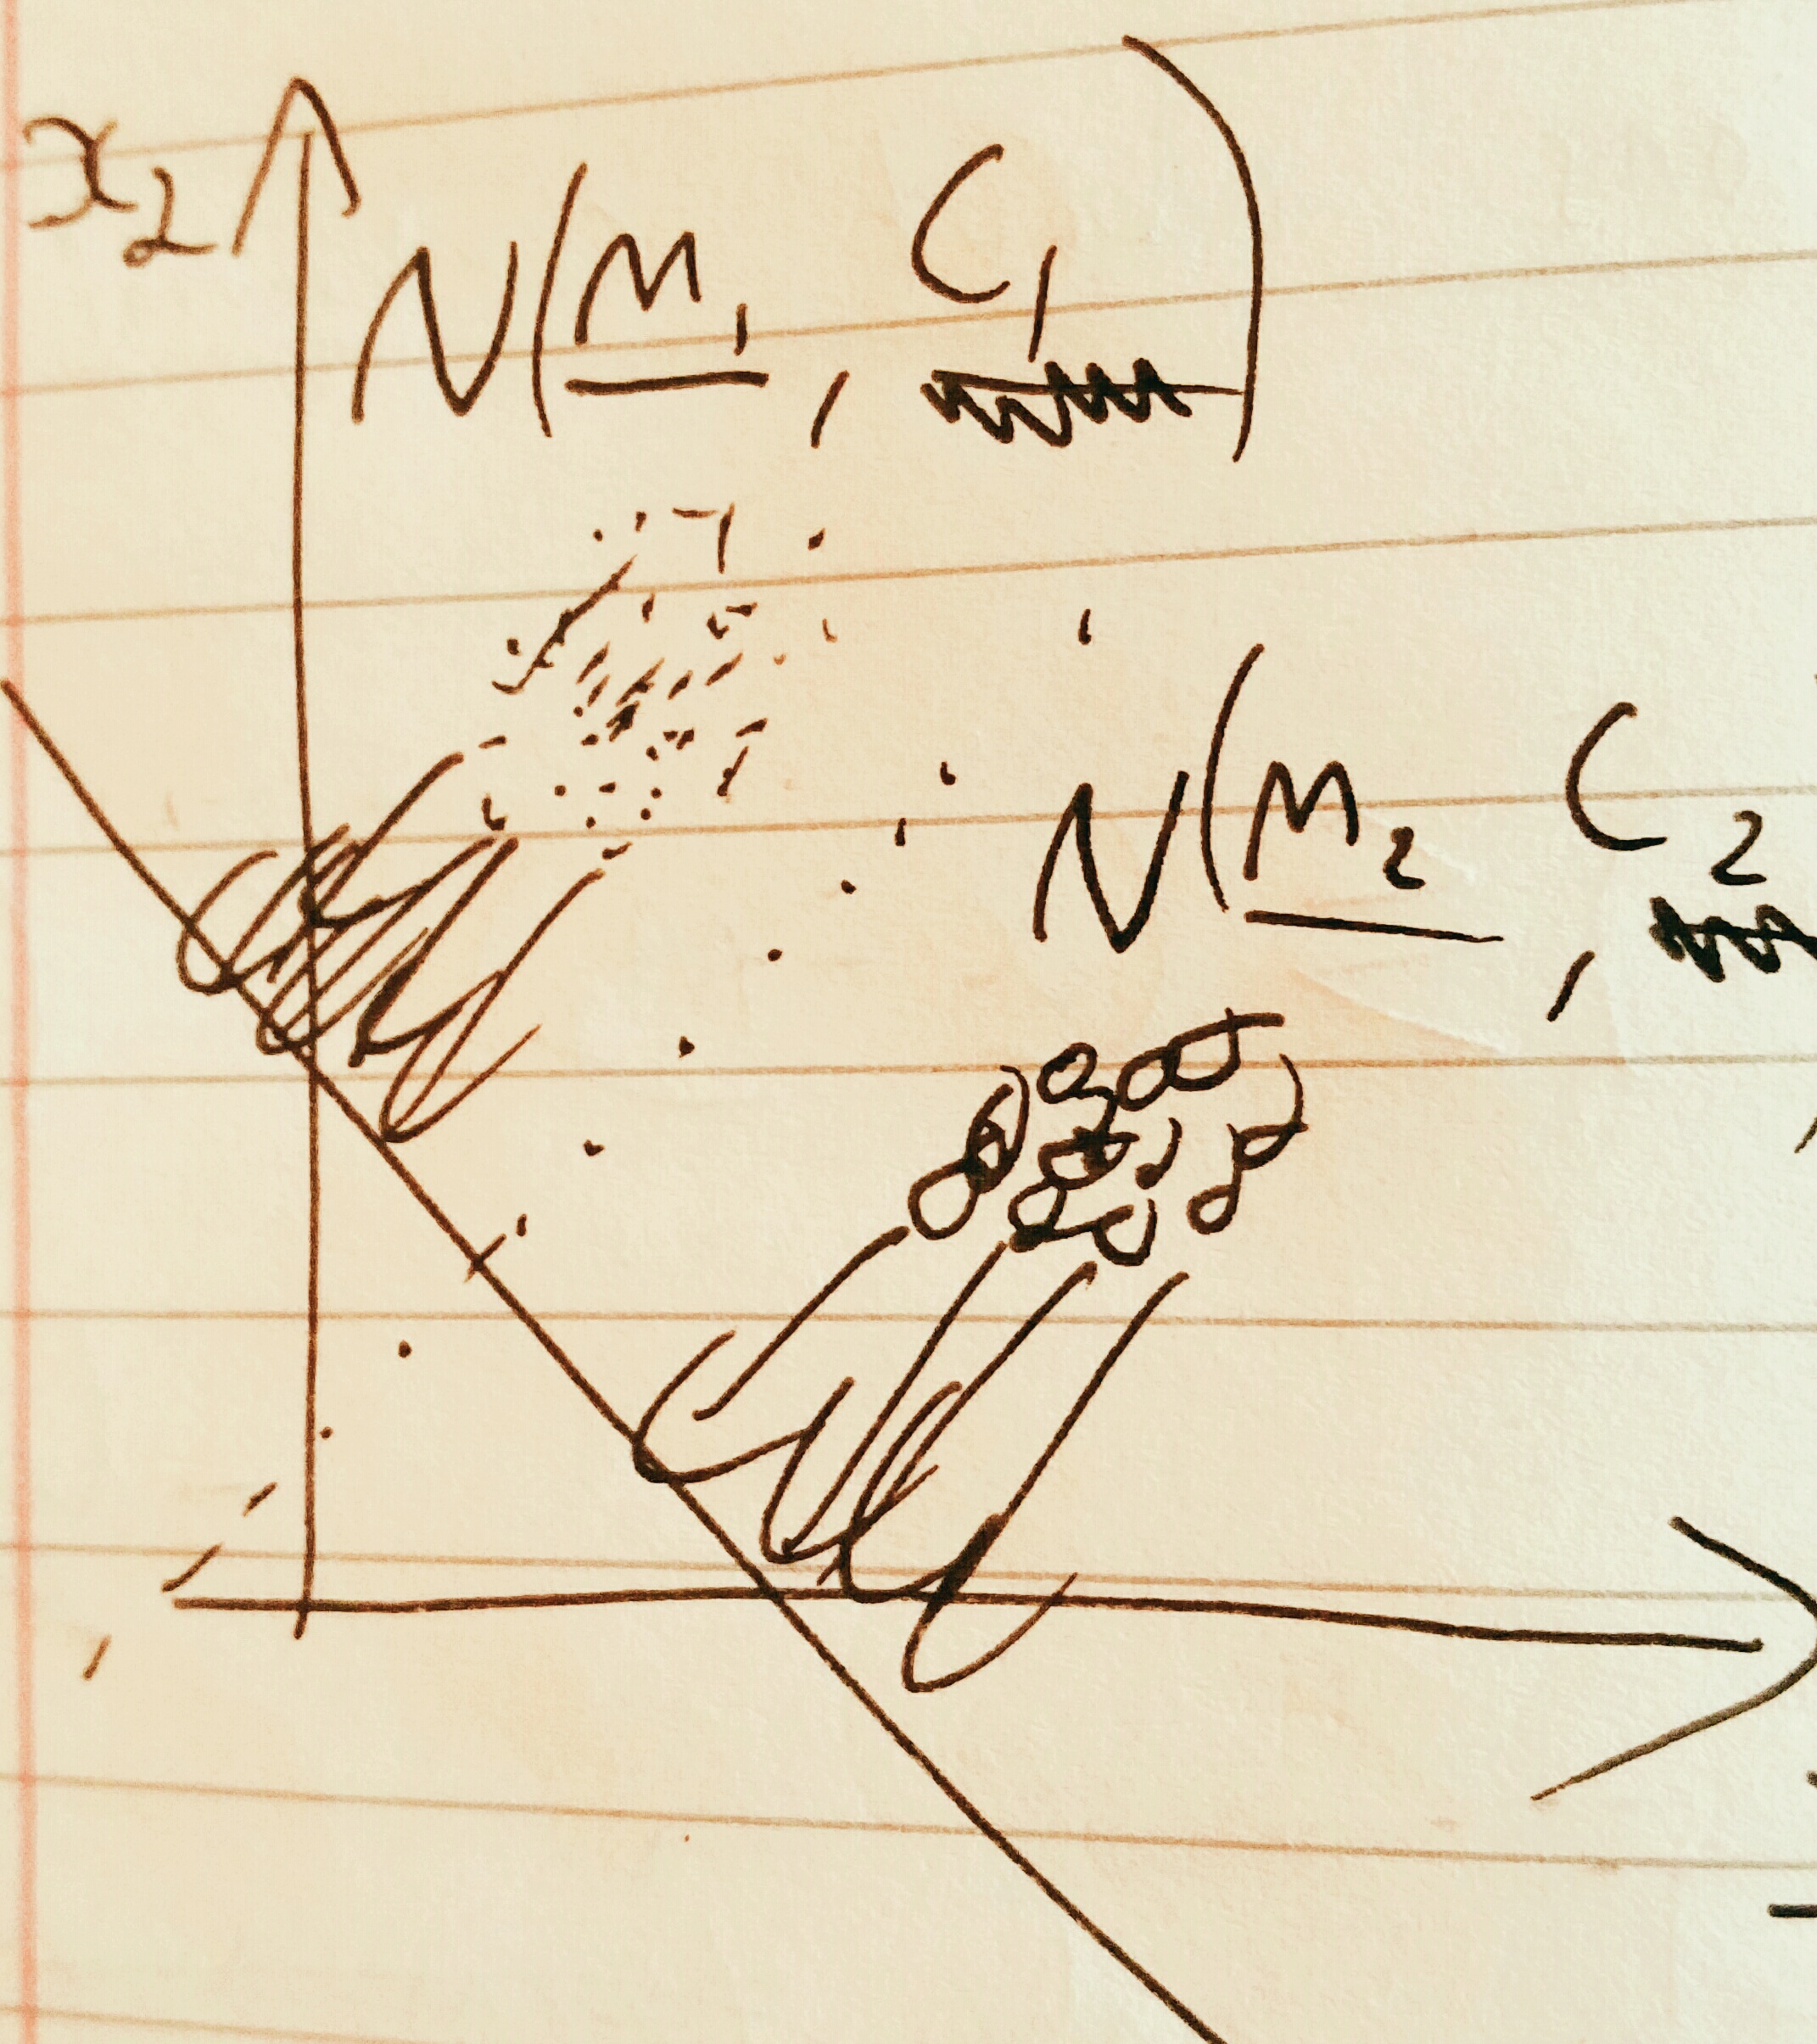 x₂
N(m₁, C₁)
N(m₂, C₂